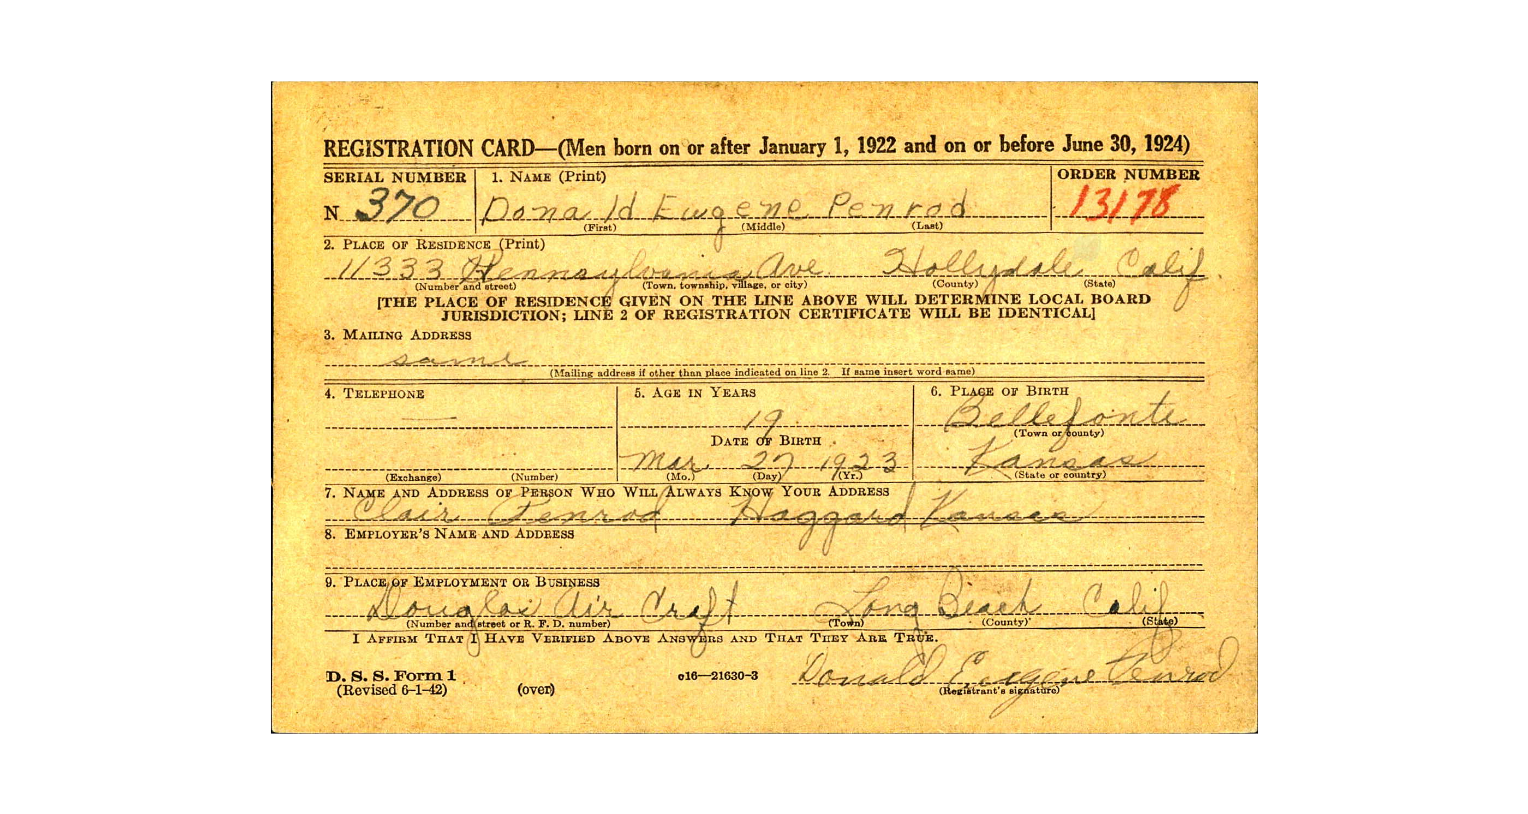 REGISTRATION CARD—(Men born on or after January 1, 1922 and on or before June 30, 1924)
SERIAL NUMBER 1. NAME (Print) ORDER NUMBER
N 370 Donald Eugene Penrod 13178
(First) (Middle) (Last)
2. PLACE OF RESIDENCE (Print)
11333 Pennsylvania Ave. Hollydale Calif.
(Number and street) (Town, township, village, or city) (County) (State)
[THE PLACE OF RESIDENCE GIVEN ON THE LINE ABOVE WILL DETERMINE LOCAL BOARD
JURISDICTION; LINE 2 OF REGISTRATION CERTIFICATE WILL BE IDENTICAL]
3. MAILING ADDRESS
same
(Mailing address if other than place indicated on line 2. If same insert word same)
4. TELEPHONE 5. AGE IN YEARS 6. PLACE OF BIRTH
— 19 Bellefonte
DATE OF BIRTH (Town or county)
Mar. 27 1923 Kansas
(Exchange) (Number) (Mo.) (Day) (Yr.) (State or country)
7. NAME AND ADDRESS OF PERSON WHO WILL ALWAYS KNOW YOUR ADDRESS
Clair Penrod Haggard Kansas
8. EMPLOYER'S NAME AND ADDRESS
9. PLACE OF EMPLOYMENT OR BUSINESS
Douglas Air Craft Long Beach Calif
(Number and street or R. F. D. number) (Town) (County) (State)
I AFFIRM THAT I HAVE VERIFIED ABOVE ANSWERS AND THAT THEY ARE TRUE.
D. S. S. Form 1 c16—21630-3 Donald Eugene Penrod
(Revised 6-1-42) (over) (Registrant's signature)